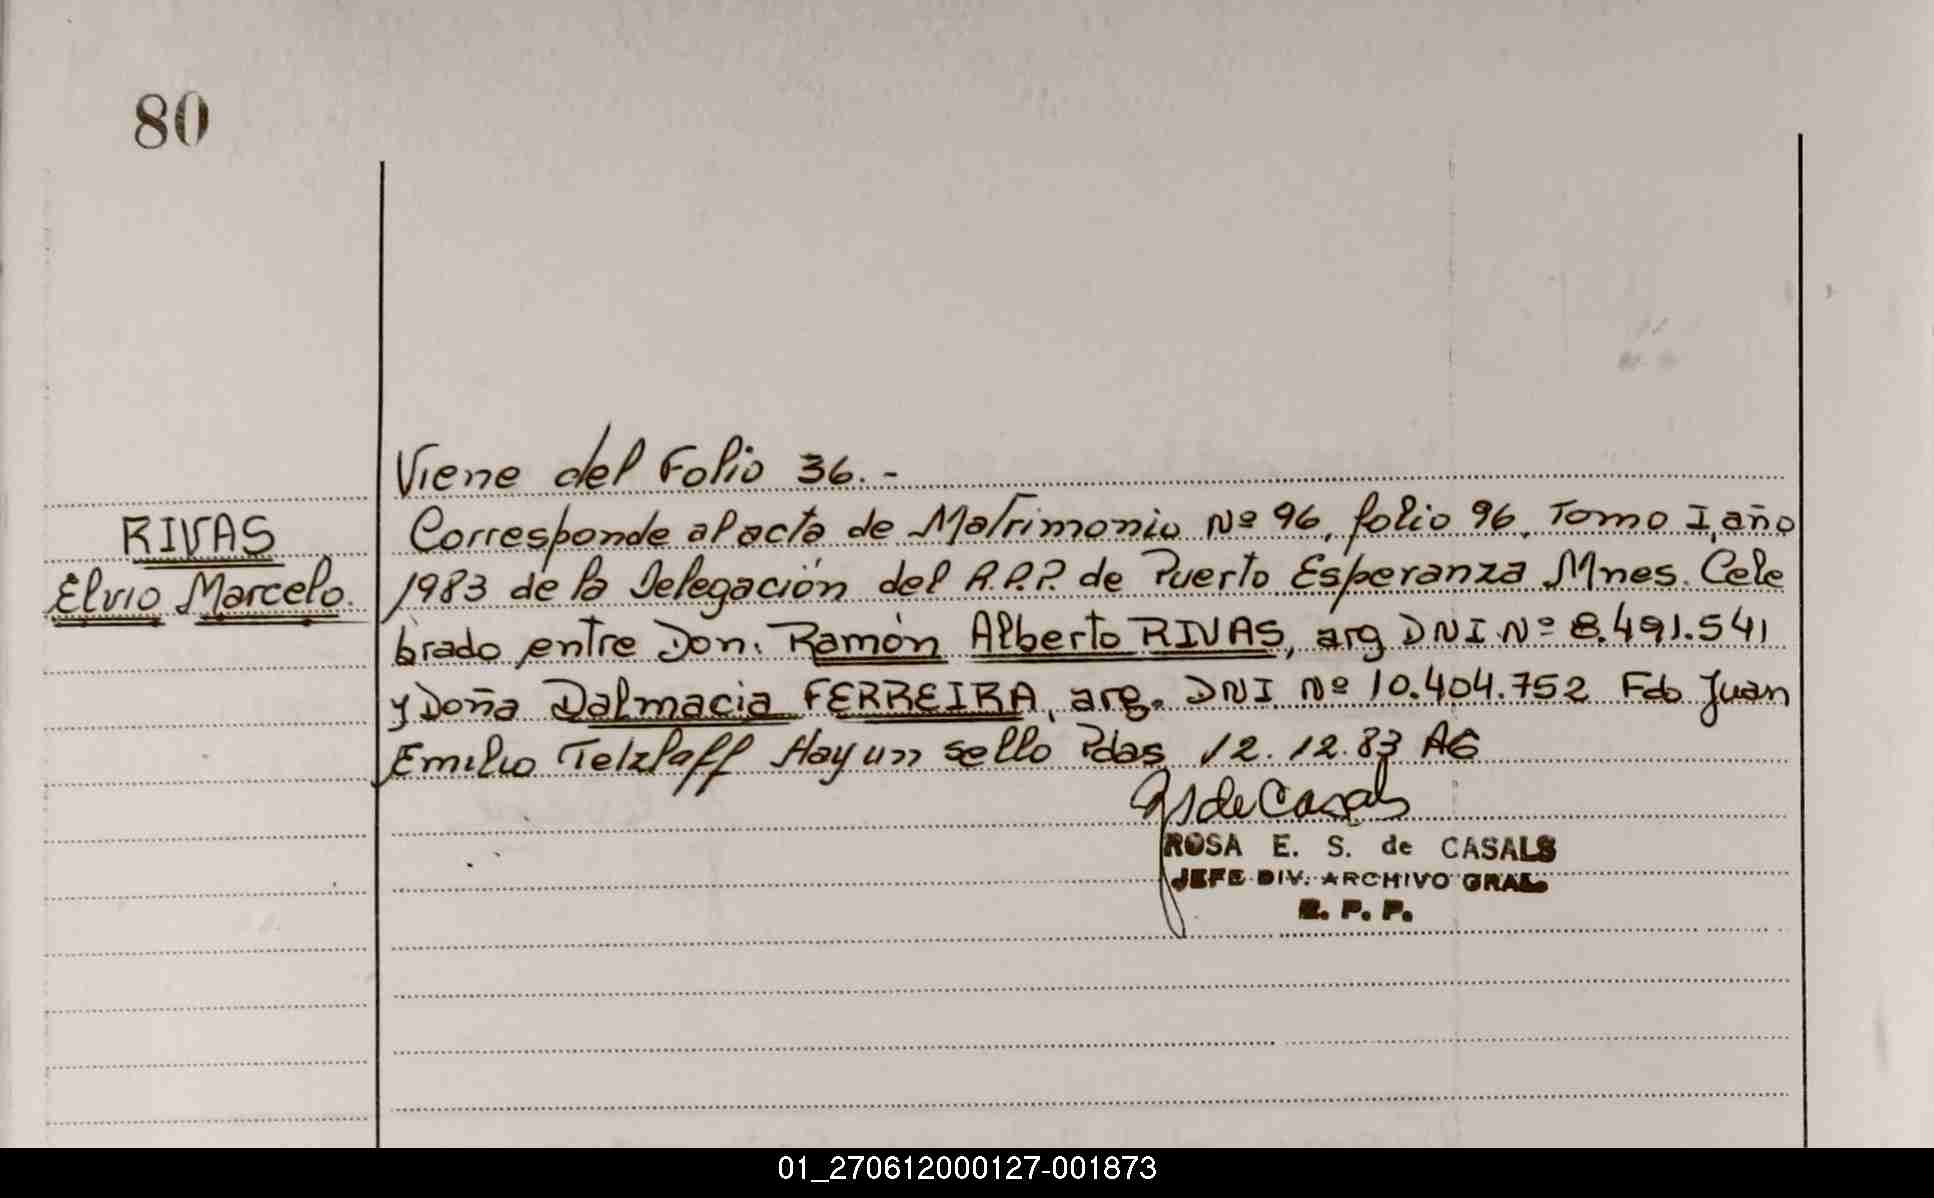 80
Viene del Folio 36.-
RIVAS
Elvio Marcelo.
Corresponde al acta de Matrimonio Nº 96, folio 96, Tomo I, año
1983 de la Delegación del R.P.P. de Puerto Esperanza Mnes. Cele
brado entre Don. Ramón Alberto RIVAS, arg DNI Nº 8.491.541
y Doña Dalmacia FERREIRA, arg. DNI Nº 10.404.752 Fdo Juan
Emilio Telzlaff Hay un sello Pdas 12.12.83 AG
RS de Casals
ROSA E. S. de CASALS
JEFE DIV. ARCHIVO GRAL.
R. P. P.
01_270612000127-001873